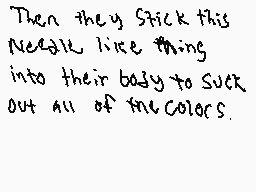 Then they stick this
Needle like thing
into their body to suck
out all of the colors.